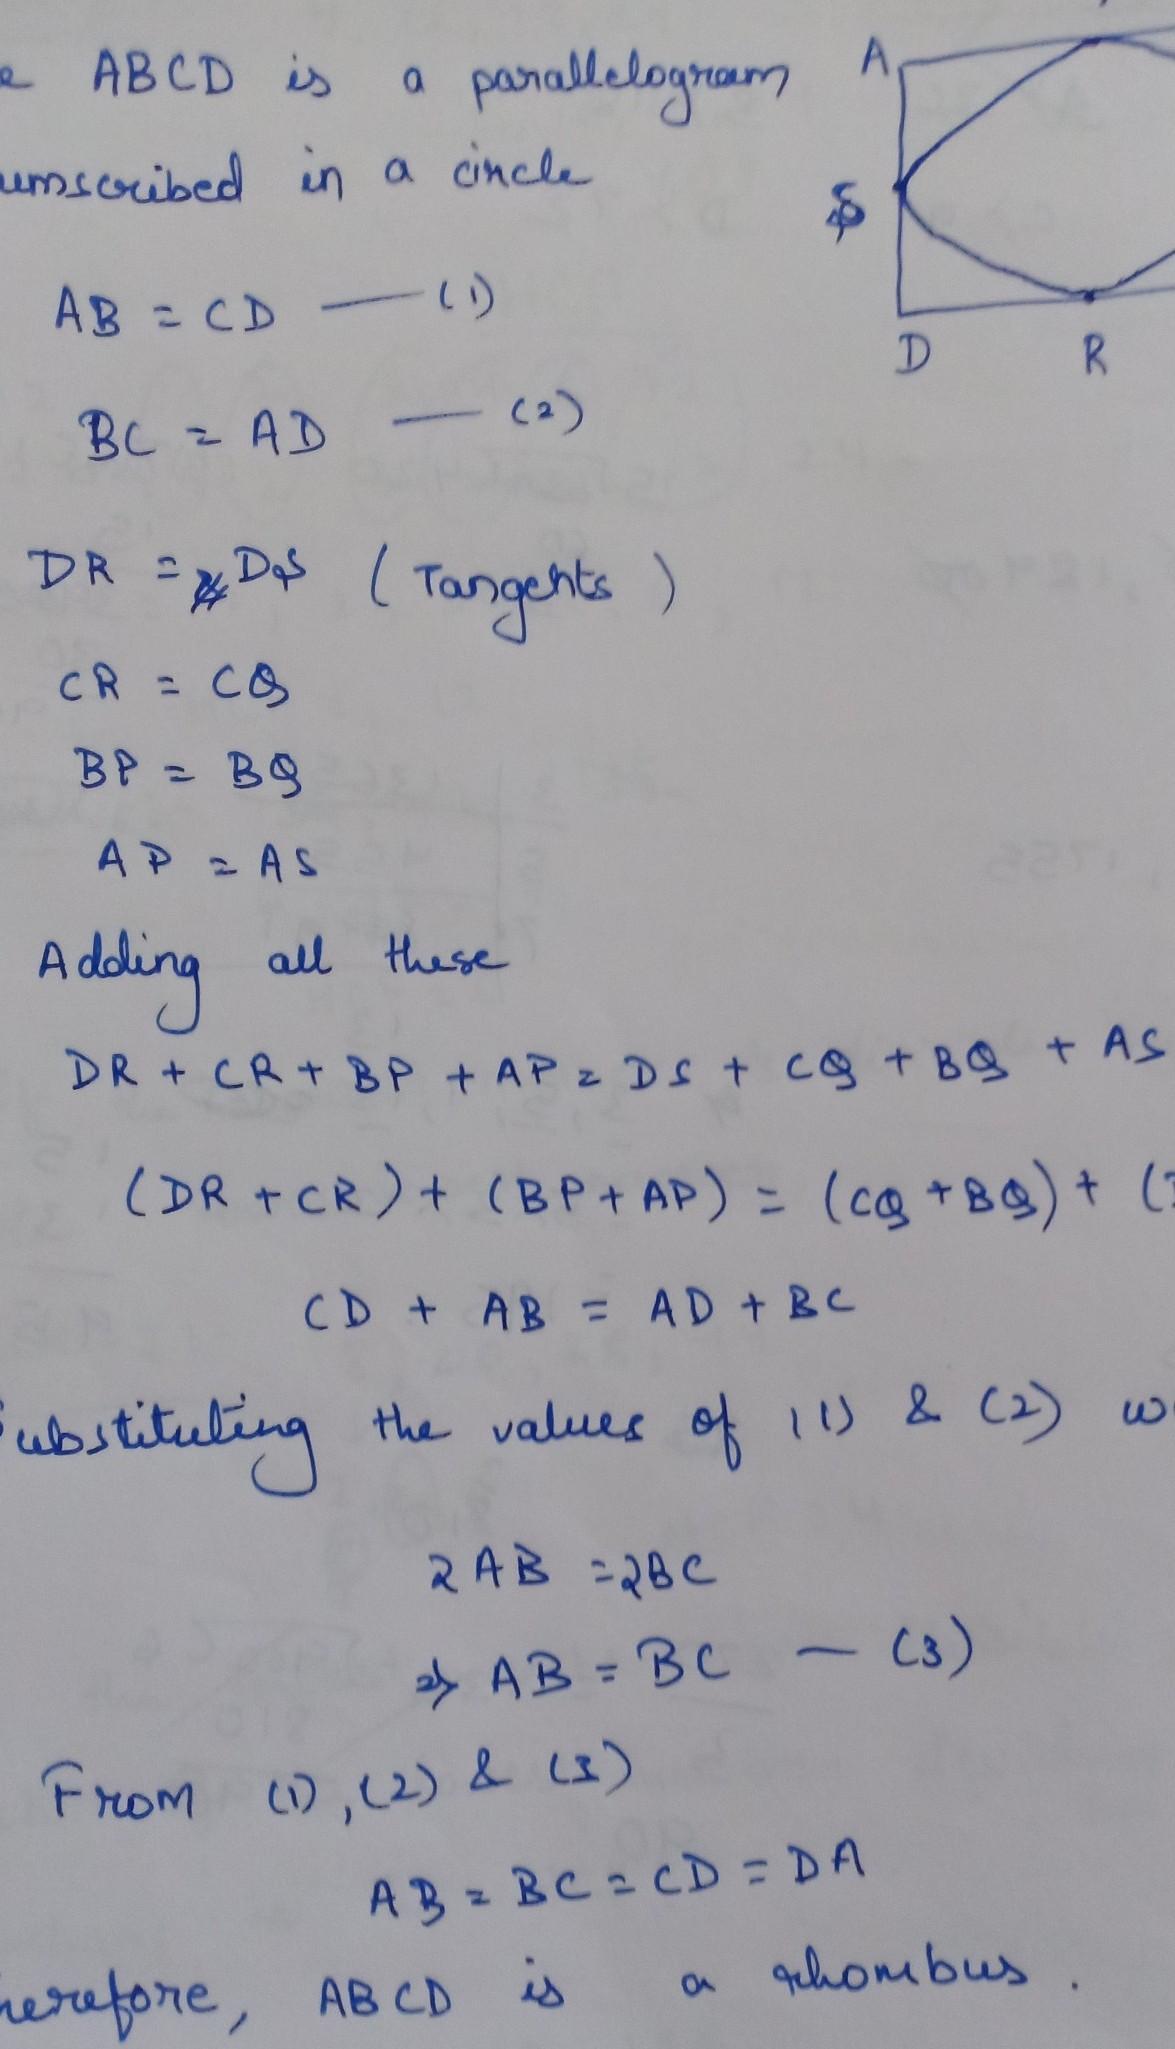 e ABCD is a parallelogram
umscribed in a circle
A
S
D R
AB = CD — (1)
BC = AD — (2)
DR = DS (Tangents)
CR = CQ
BP = BQ
AP = AS
Adding all these
DR + CR + BP + AP = DS + CQ + BQ + AS
(DR + CR) + (BP + AP) = (CQ + BQ) + (
CD + AB = AD + BC
Substituting the values of (1) & (2) w
2AB = 2BC
⇒ AB = BC — (3)
From (1), (2) & (3)
AB = BC = CD = DA
herefore, ABCD is a rhombus.